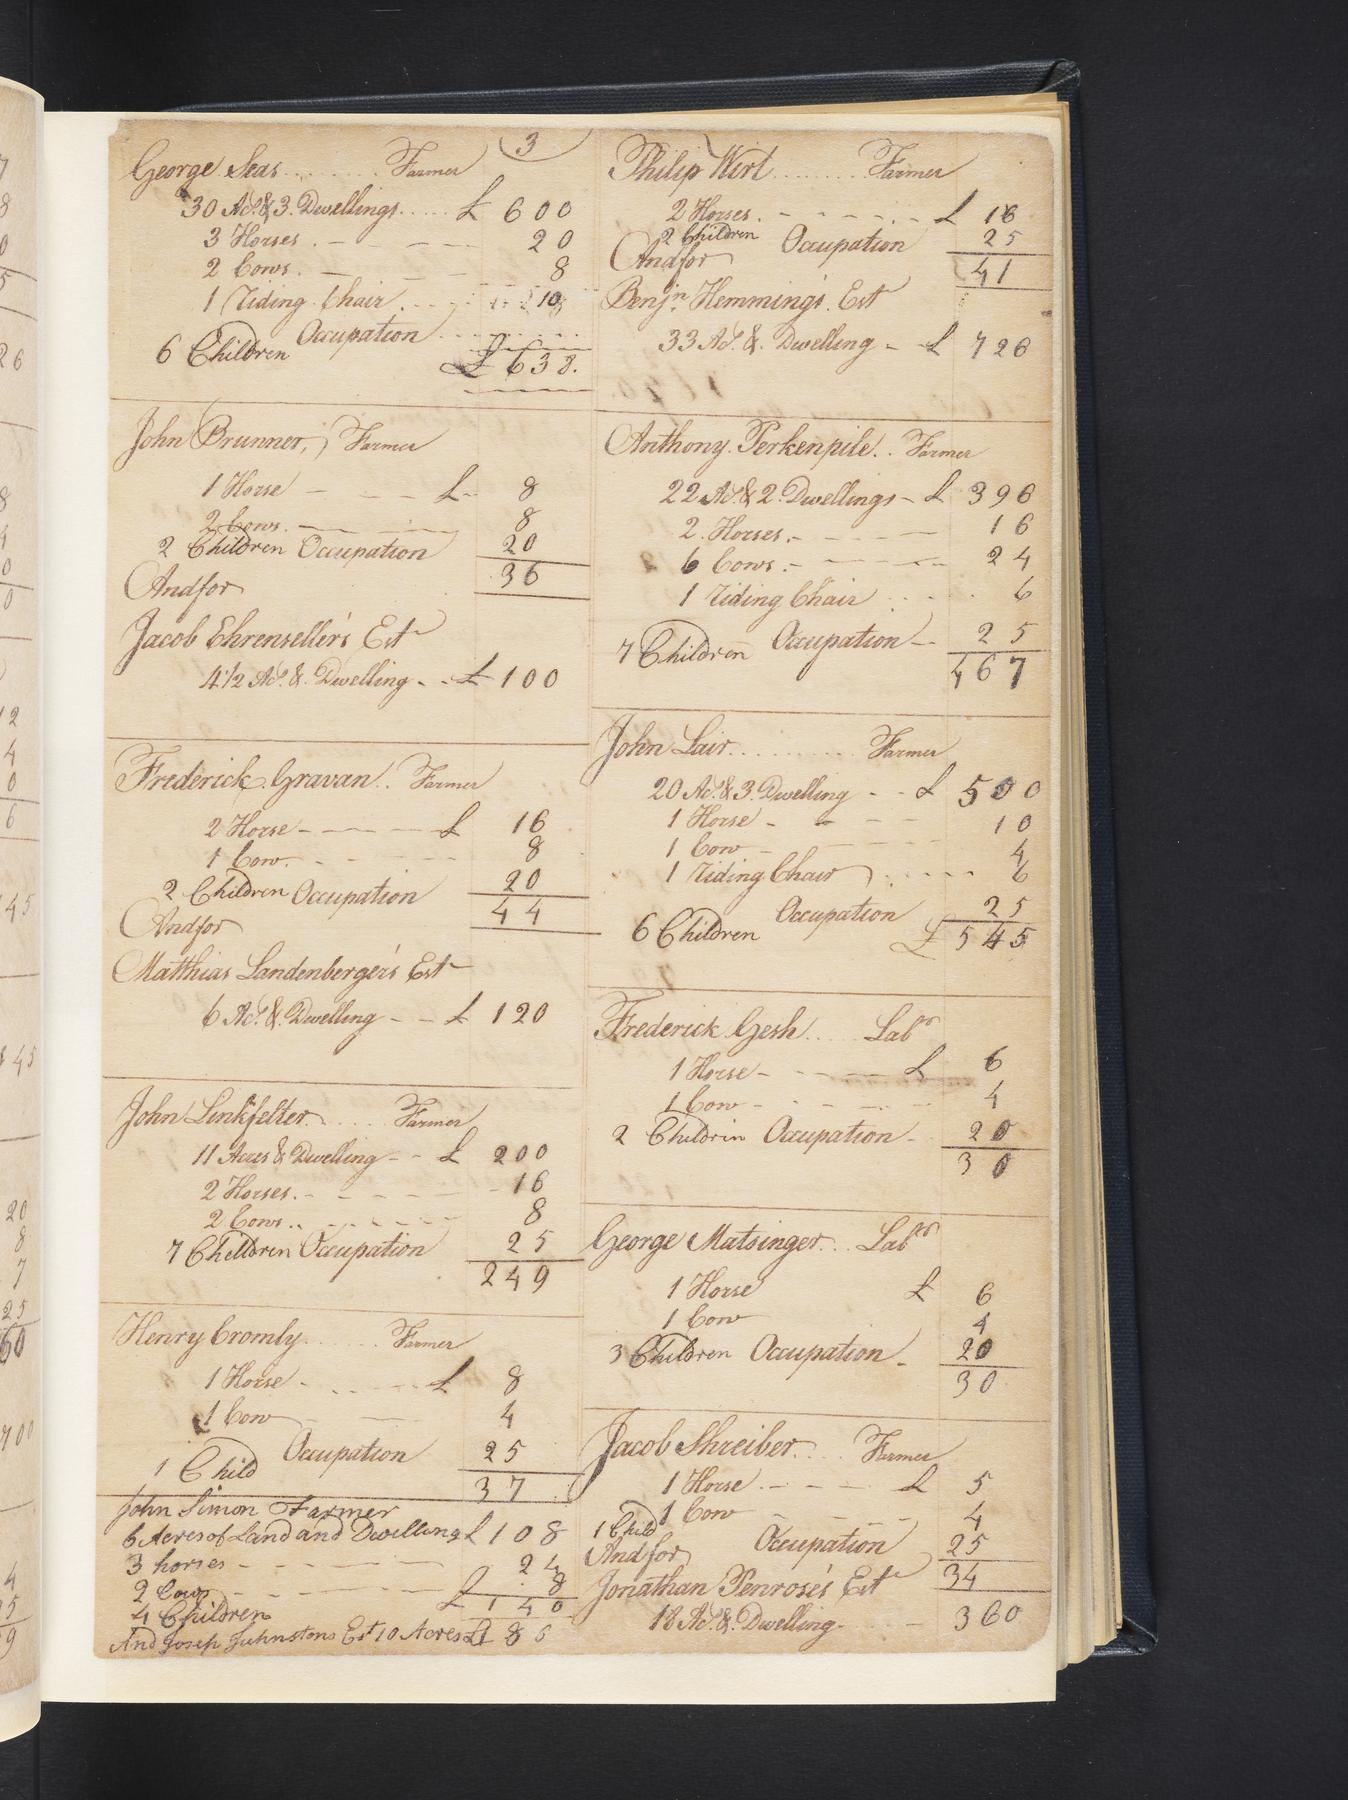 3
George Seas........ Farmer
30 Acs. & 3. Dwellings..... £ 600
3 Horses. 20
2 Cows. 8
1 Riding Chair 10
Occupation
6 Children £ 638.
John Brunner, Farmer
1 Horse £ 8
2 Cows. 8
2 Children Occupation 20
36
And for
Jacob Ehrenseller's Est
4 1/2 Acs. & Dwelling - £ 100
Frederick Gravan.. Farmer
2 Horse £ 16
1 Cow. 8
2 Children Occupation 20
44
And for
Matthias Landenberger's Est
6 Acs. & Dwelling - £ 120
John Linkfelter..... Farmer
11 Acres & Dwelling - £ 200
2 Horses. 16
2 Cows.. 8
7 Children Occupation 25
249
Henry Cromly....... Farmer
1 Horse £ 8
1 Cow 4
Occupation 25
1 Child
37
John Simon Farmer
6 Acres of Land and Dwelling £ 108
3 horses 24
2 Cows £ 8
4 Children £ 140
And Joseph Juhnstons Est 10 Acres £ 186
Philip Wirt......... Farmer
2 Horses. £ 16
2 Children Occupation 25
And for 41
Benjn. Hemming's Est
33 Acs. & Dwelling - £ 726
Anthony Perkenpile.. Farmer
22 Acs. & 2 Dwellings - £ 396
2 Horses. 16
6 Cows. 24
1 Riding Chair 6
Occupation 25
7 Children
467
John Lair......... Farmer
20 Acs. & 3 Dwelling - £ 500
1 Horse 10
1 Cow 4
1 Riding Chair 6
Occupation 25
6 Children £ 545
Frederick Gesh.... Labor
1 Horse £ 6
1 Cow 4
2 Children Occupation 20
30
George Matsinger... Labor
1 Horse £ 6
1 Cow 4
3 Children Occupation 20
30
Jacob Shreiber.... Farmer
1 Horse £ 5
1 Cow 4
1 Child
And for Occupation 25
34
Jonathan Penrose's Est
18 Acs. & Dwelling 360